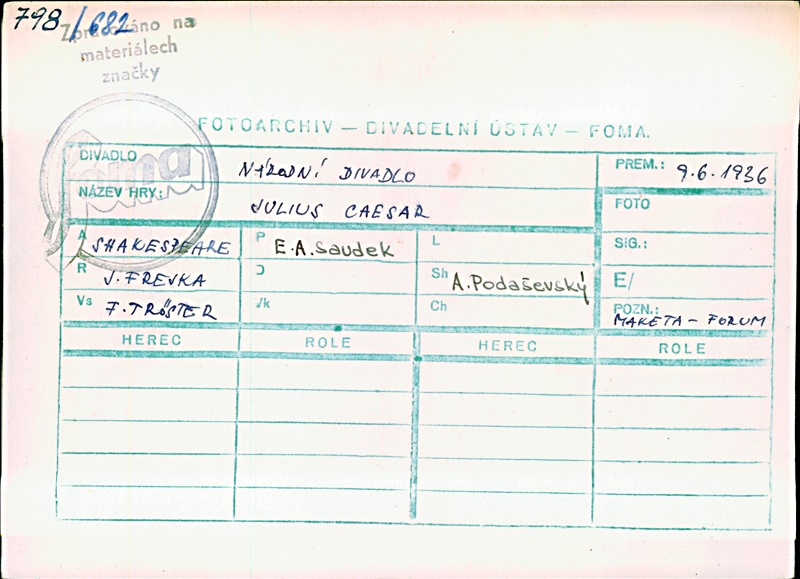 798/682
Zpracováno na
materiálech
značky
foma
FOTOARCHIV — DIVADELNÍ ÚSTAV — FOMA.
DIVADLO NÁRODNÍ DIVADLO PREM.: 9.6.1936
NÁZEV HRY: JULIUS CAESAR FOTO
A SHAKESPEARE P E.A.Saudek L SIG.:
R J. FREJKA D Sh A.Podaševský E/
Vs F. TRÖSTER Vk Ch POZN.: MAKETA – FORUM
HEREC ROLE HEREC ROLE